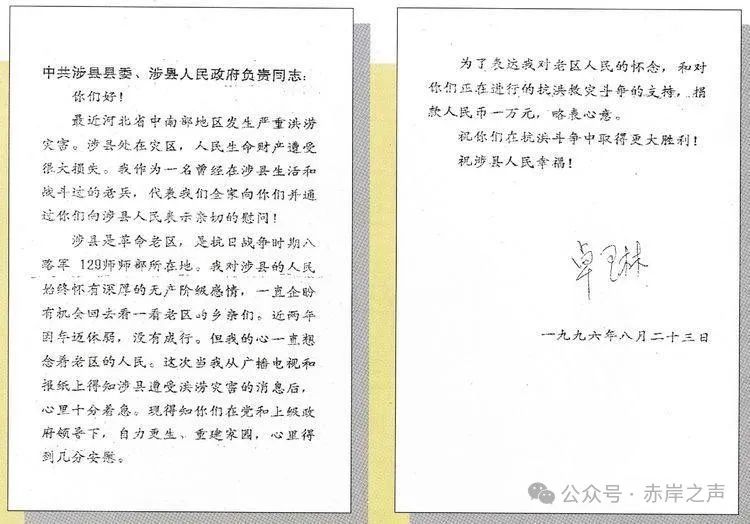 中共涉县县委、涉县人民政府负责同志：
你们好！
最近河北省中南部地区发生严重洪涝
灾害。涉县处在灾区，人民生命财产遭受
很大损失。我作为一名曾经在涉县生活和
战斗过的老兵，代表我们全家向你们并通
过你们向涉县人民表示亲切的慰问！
涉县是革命老区，是抗日战争时期八
路军129师师部所在地。我对涉县的人民
始终怀有深厚的无产阶级感情，一直企盼
有机会回去看一看老区的乡亲们。近两年
因年迈体弱，没有成行。但我的心一直想
念着老区的人民。这次当我从广播电视和
报纸上得知涉县遭受洪涝灾害的消息后，
心里十分着急。现得知你们在党和上级政
府领导下，自力更生、重建家园，心里得
到几分安慰。
为了表达我对老区人民的怀念，和对
你们正在进行的抗洪救灾斗争的支持，捐
款人民币一万元，略表心意。
祝你们在抗洪斗争中取得更大胜利！
祝涉县人民幸福！
卓琳
一九九六年八月二十三日
公众号·赤岸之声